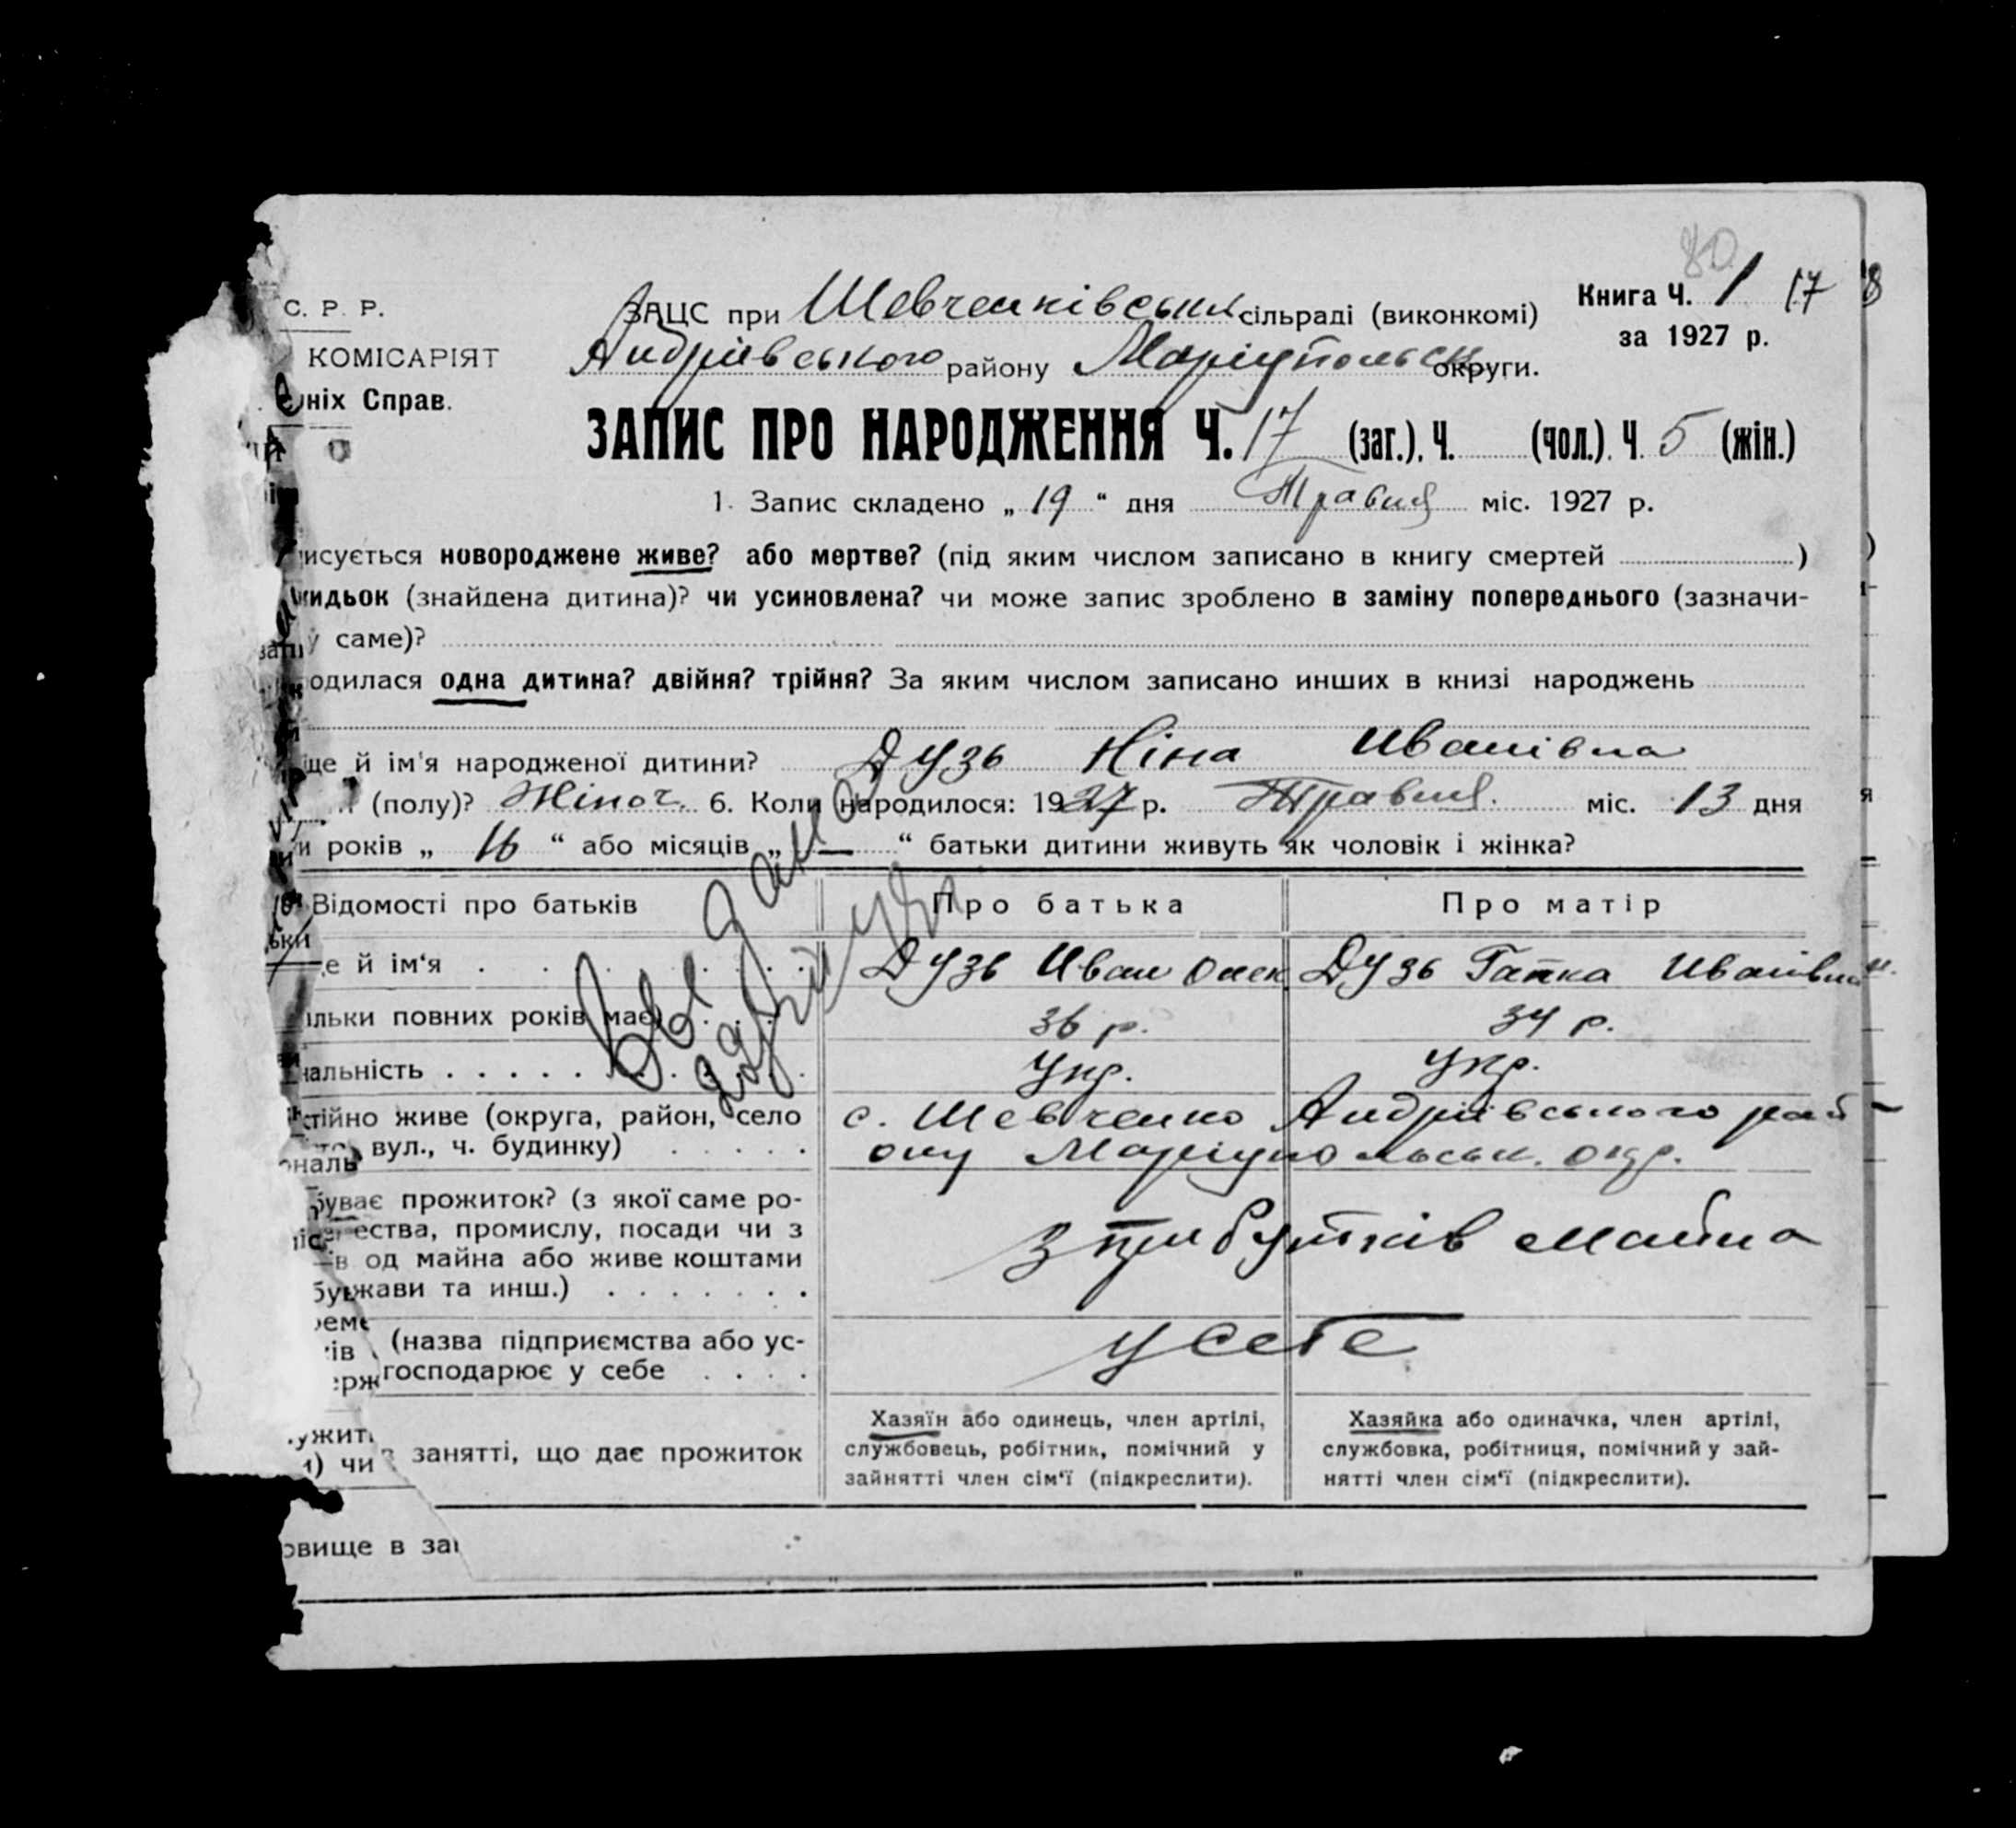 80
С. Р. Р.
ЗАЦС при Шевченківськ сільраді (виконкомі)
Книга Ч. 1 17
8
КОМІСАРІЯТ
Андріївського району Маріупольськ округи.
за 1927 р.
ніх Справ.
ЗАПИС ПРО НАРОДЖЕННЯ Ч. 17 (заг.). Ч. (чол.). Ч. 5 (жін.)
1. Запис складено „ 19 “ дня Травня міс. 1927 р.
исується новороджене живе? або мертве? (під яким числом записано в книгу смертей )
кидьок (знайдена дитина)? чи усиновлена? чи може запис зроблено в заміну попереднього (зазначи-
у саме)?
одилася одна дитина? двійня? трійня? За яким числом записано инших в книзі народжень
ще й ім'я народженої дитини? Дузь Ніна Иванівна
(полу)? Жіноч. 6. Коли народилося: 1927 р. Травня. міс. 13 дня
и років „ 16 “ або місяців „ — “ батьки дитини живуть як чоловік і жінка?
Відомості про батьків Про батька Про матір
е й ім‘я Дузь Иван Олек Дузь Гапка Иванівна
ільки повних років має 36 р. 34 р.
нальність Укр. Укр.
стійно живе (округа, район, село с. Шевченко Андріївського рай
вул., ч. будинку) ону Маріупольськ. окр.
ональ
буває прожиток? (з якої саме ро-
ества, промислу, посади чи з з прибутків майна
в од майна або живе коштами
жави та инш.)
(назва підприємства або ус- у себе
господарює у себе
Хазяїн або одинець, член артілі, Хазяйка або одиначка, член артілі,
занятті, що дає прожиток службовець, робітник, помічний у службовка, робітниця, помічний у зай-
зайнятті член сім‘ї (підкреслити). нятті член сім‘ї (підкреслити).
ужит
чи
овище в за